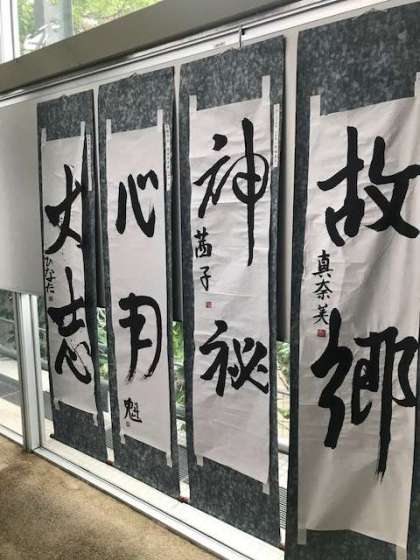 故郷
真奈美
神祕
茜子
心月
魁
大志
ひなた